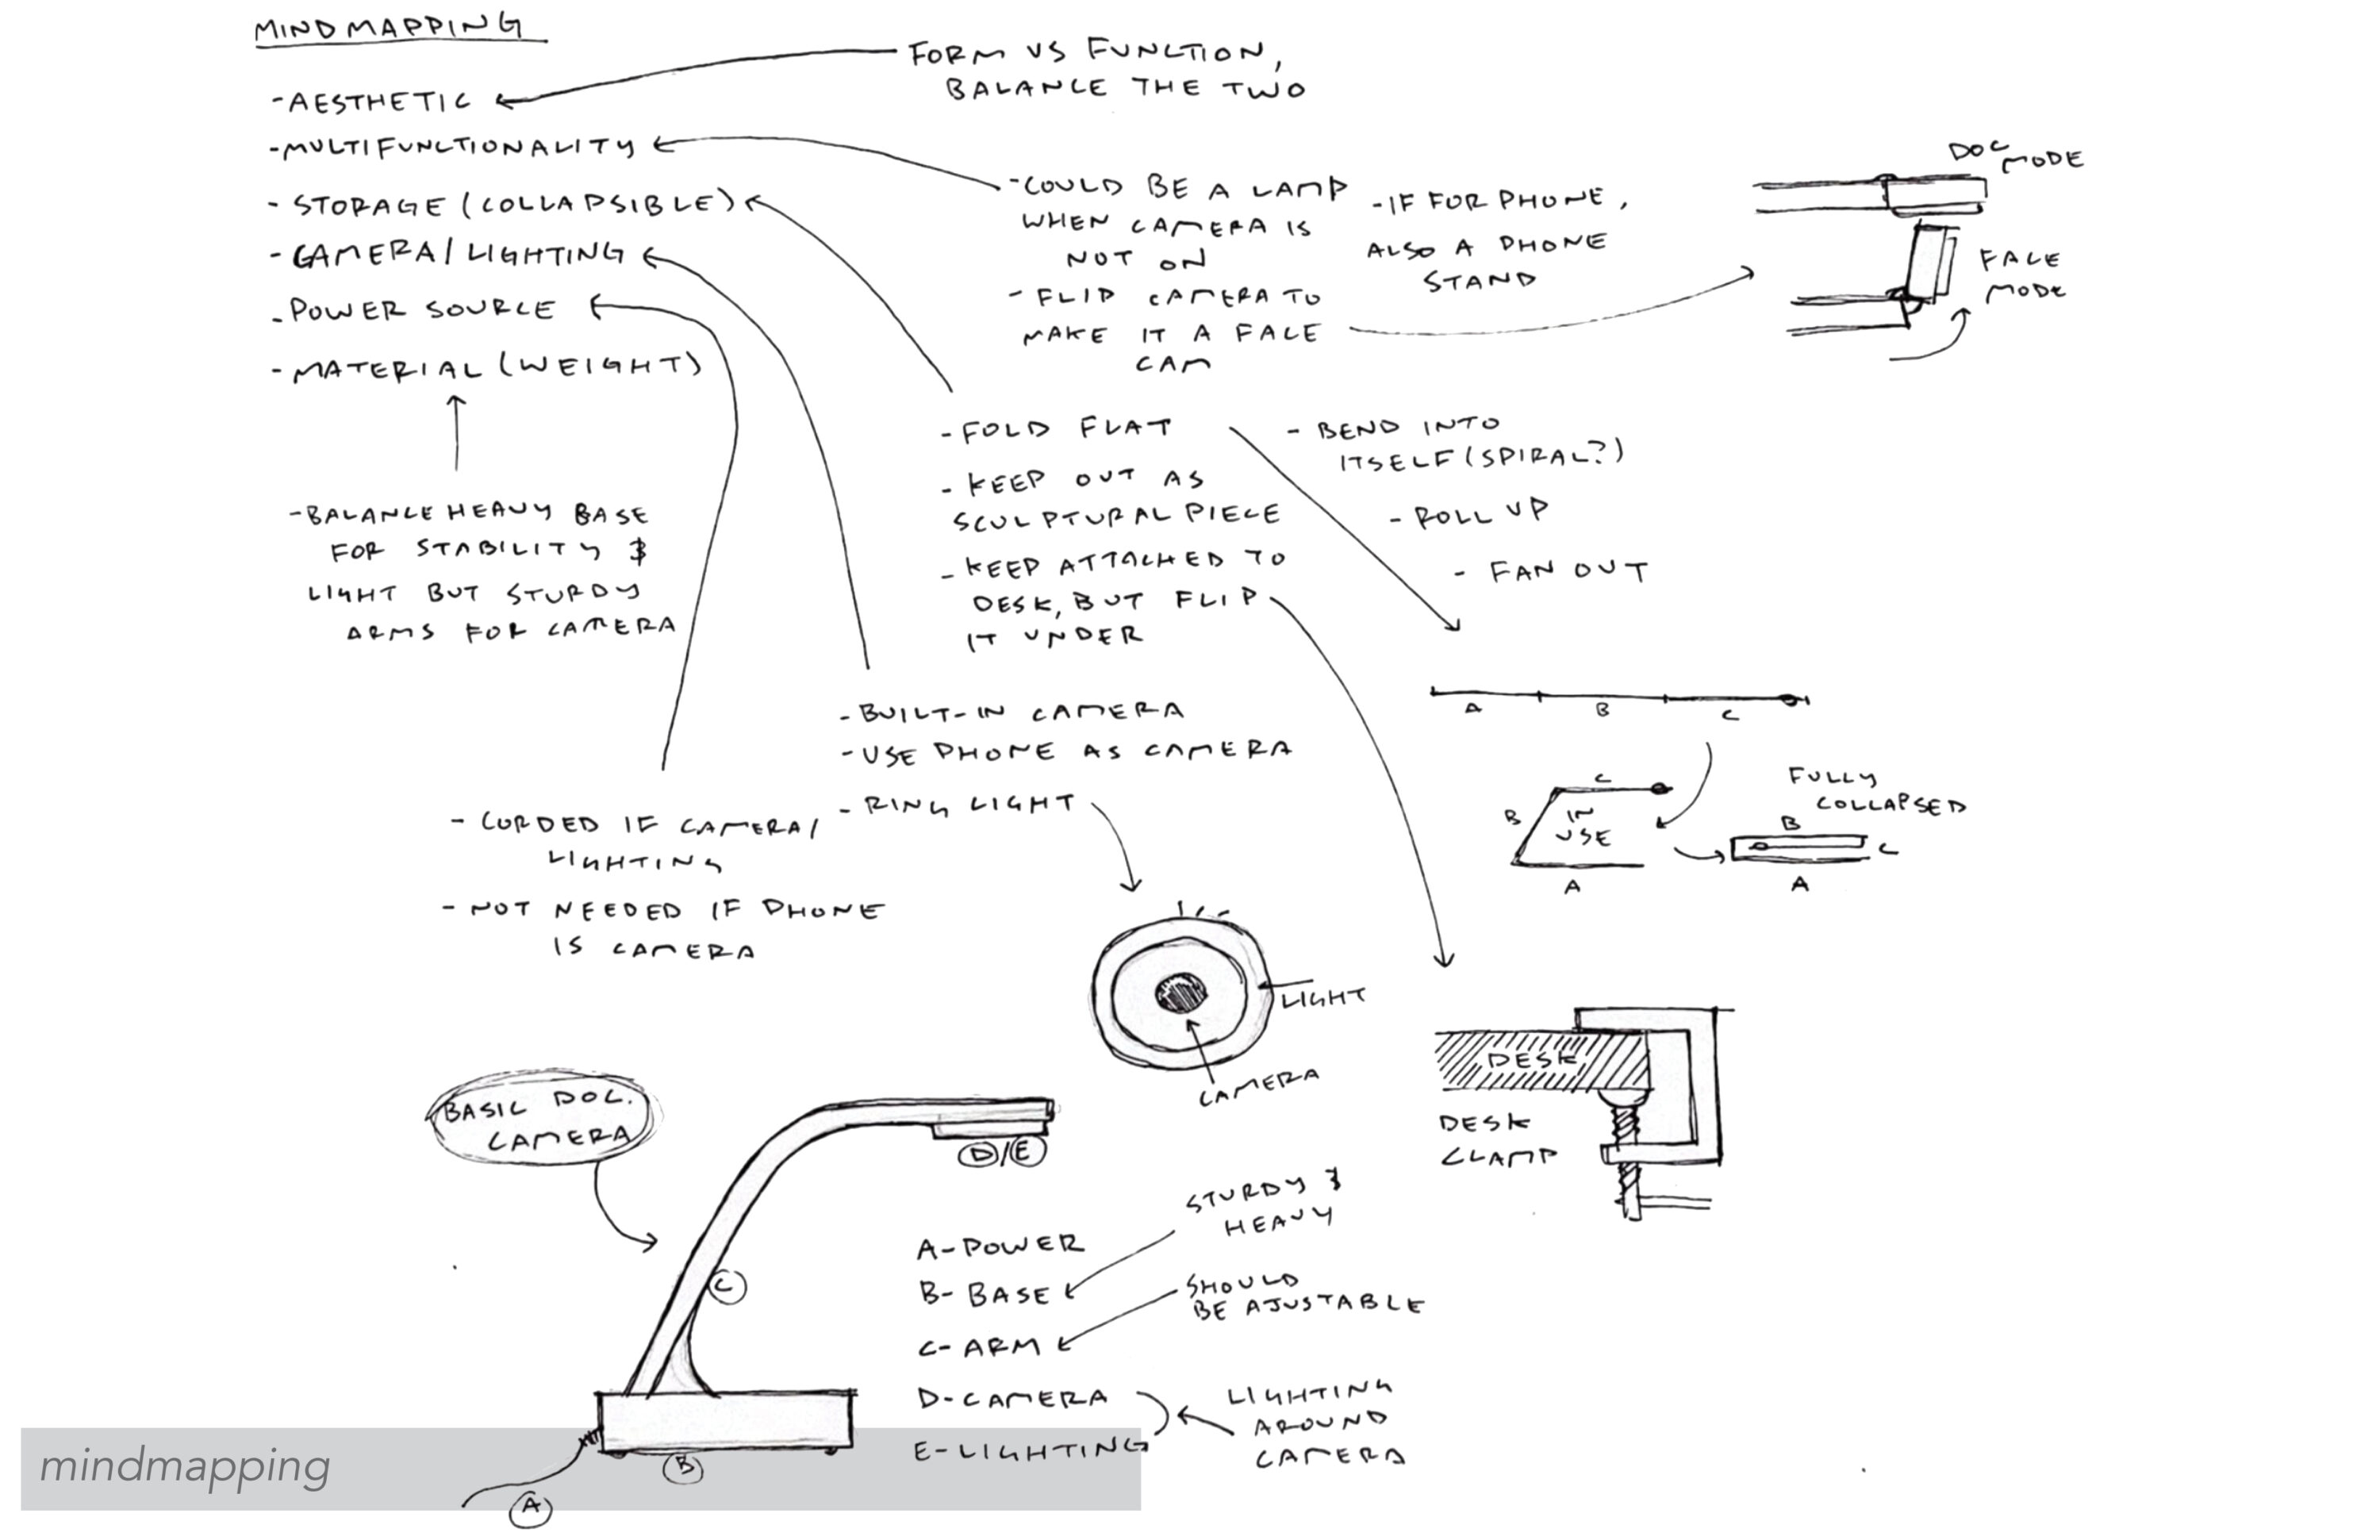 MINDMAPPING
-AESTHETIC
-MULTIFUNCTIONALITY
- STORAGE (COLLAPSIBLE)
- CAMERA/LIGHTING
- POWER SOURCE
- MATERIAL (WEIGHT)
FORM VS FUNCTION,
BALANCE THE TWO
-COULD BE A LAMP
WHEN CAMERA IS
NOT ON
- FLIP CAMERA TO
MAKE IT A FACE
CAM
-IF FOR PHONE,
ALSO A PHONE
STAND
DOC
MODE
FACE
MODE
- FOLD FLAT
- KEEP OUT AS
SCULPTURAL PIECE
- KEEP ATTACHED TO
DESK, BUT FLIP
IT UNDER
- BEND INTO
ITSELF (SPIRAL?)
- ROLL UP
- FAN OUT
-BALANCE HEAVY BASE
FOR STABILITY &
LIGHT BUT STURDY
ARMS FOR CAMERA
- BUILT-IN CAMERA
- USE PHONE AS CAMERA
- RING LIGHT
A B C
C
B
IN
USE
A
FULLY
COLLAPSED
B
C
A
- CORDED IF CAMERA/
LIGHTING
- NOT NEEDED IF PHONE
IS CAMERA
LIGHT
CAMERA
DESK
DESK
CLAMP
BASIC DOC.
CAMERA
D/E
C
B
A
A-POWER
B- BASE
C- ARM
D-CAMERA
E-LIGHTING
STURDY &
HEAVY
SHOULD
BE AJUSTABLE
LIGHTING
AROUND
CAMERA
mindmapping